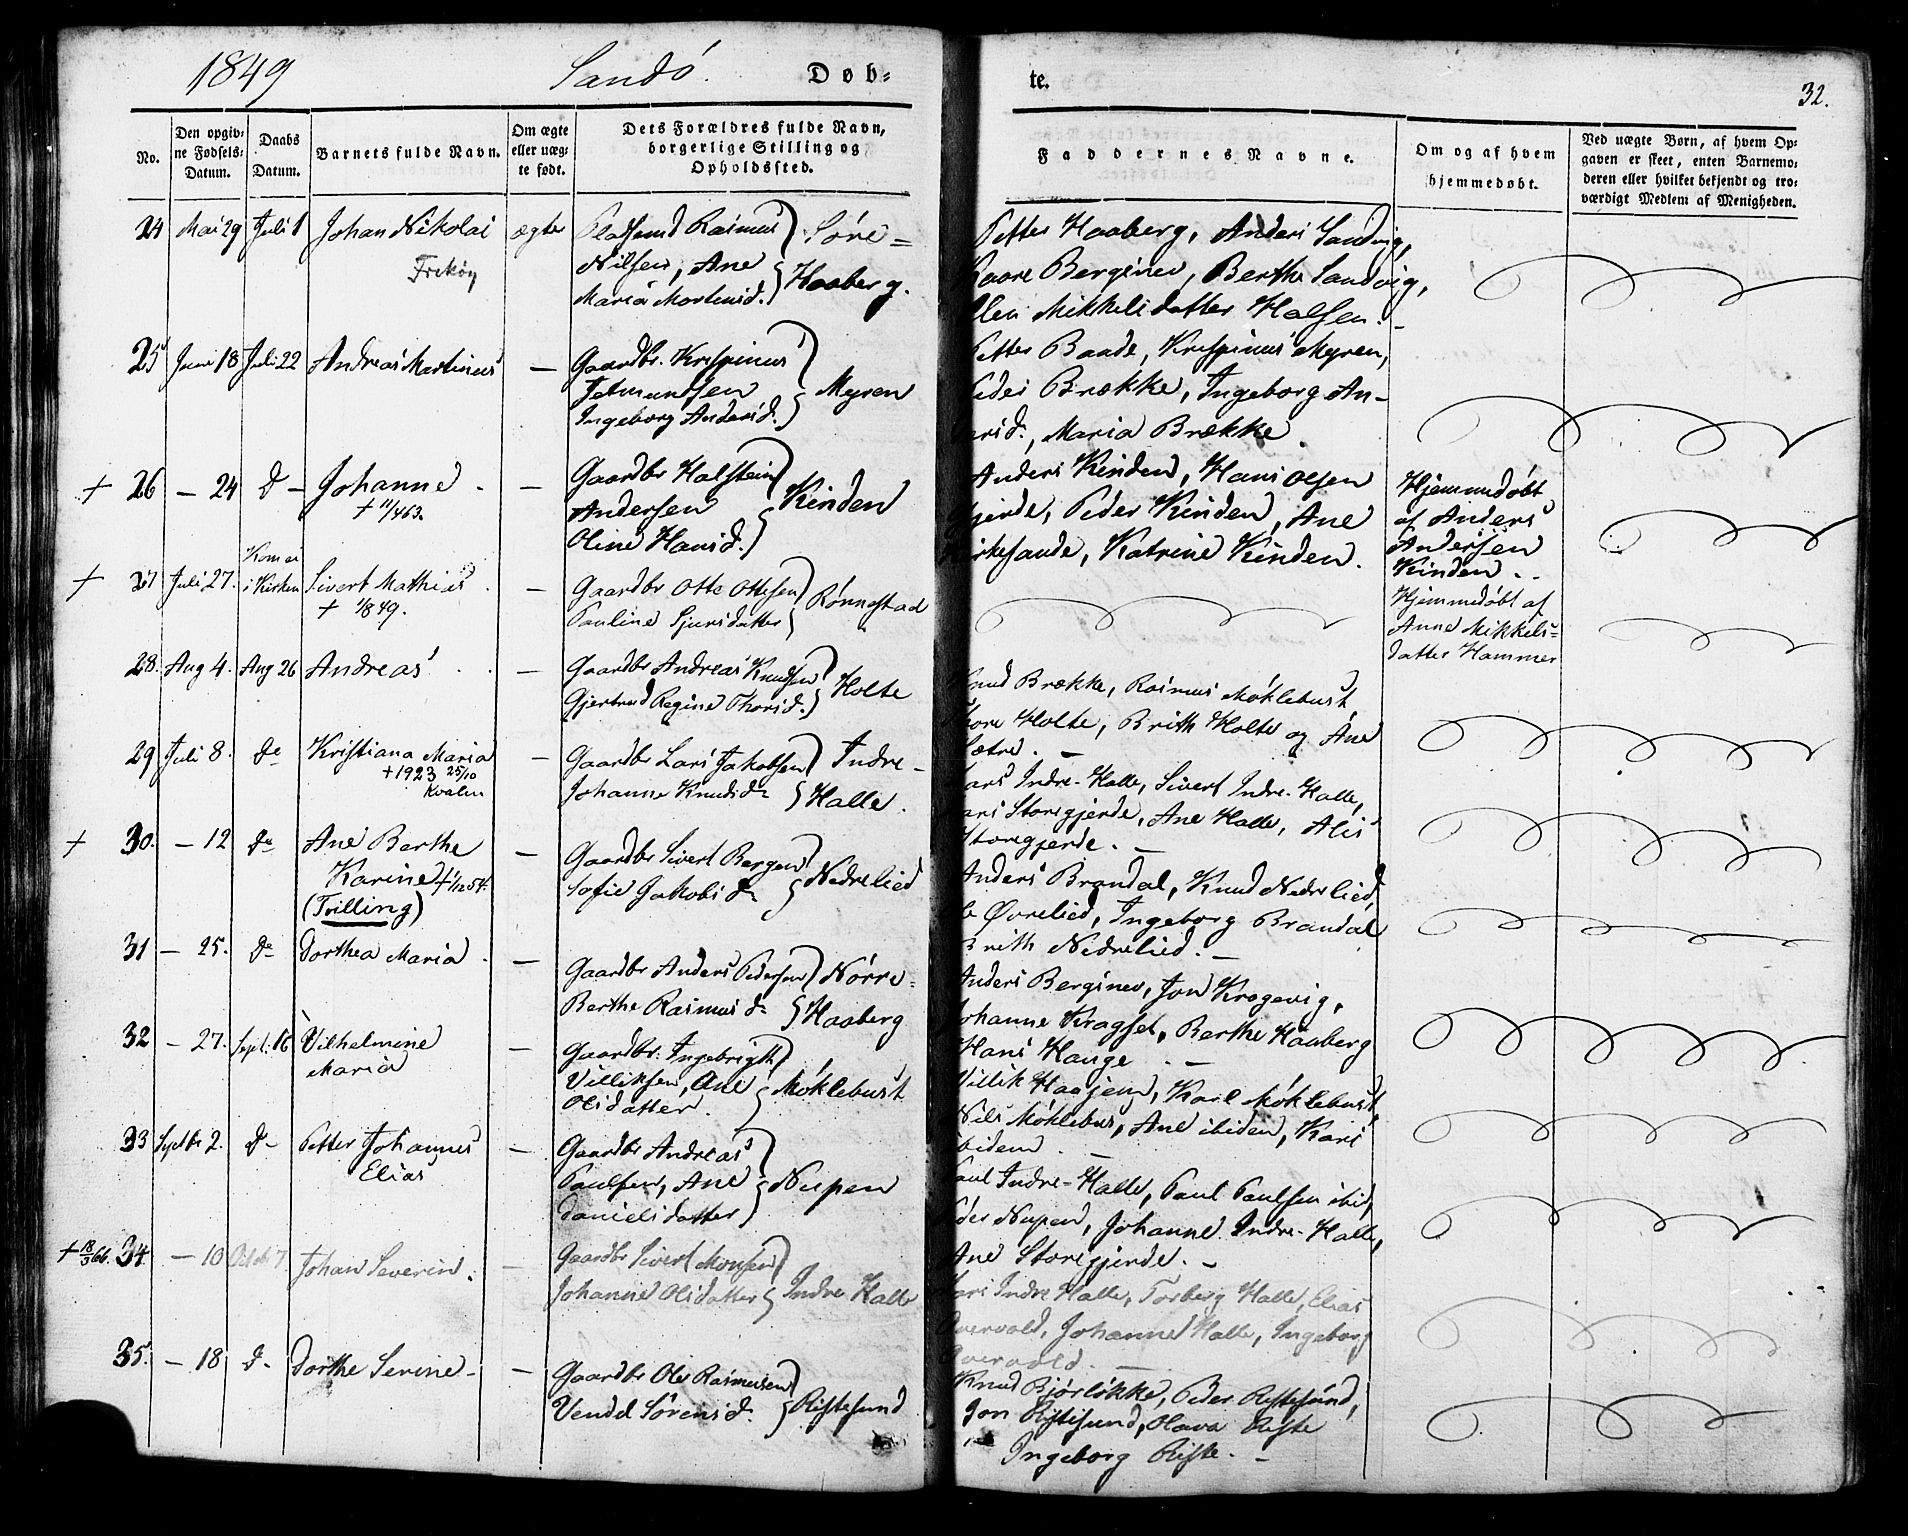 1849 Sandö. Døb-
te. 32.
No.
Den opgiv-
ne Fødsels-
Datum.
Daabs
Datum.
Barnets fulde Navn.
Om ægte
eller uæg-
te født.
Dets Forældres fulde Navn,
borgerlige Stilling og
Opholdssted.
Faddernes Navne.
Om og af hvem
hjemmedøbt.
Ved uægte Børn, af hvem Op-
gaven er skeet, enten Barnemo-
deren eller hvilket bekjendt og tro-
værdigt Medlem af Menigheden.
24 Mai 29 Juli 1 Johan Nikolai ægte Pladsmd Rasmus Söre=
Nilsen, Ane Haaberg.
Maria Martinsd.
Petter Haaberg, Anders Sandvig,
Kaare Berginer, Berthe Sandvig,
Mikkelsdatter Halsen.
25 Juni 18 Juli 22 Andreas Martinus — Gaardbr. Krispinus
Myren
Ingeborg Andersd.
Petter Baade, Krispinus Myren,
Peder Brække, Ingeborg An-
dersd., Maria Brække
+ 26 — 24 d — Johanne — Gaardbr Halstein
+ 11/4 63.
Andersen Kinden
Oline Hansd.
Anders Kinden, Hans Olsen
Gjerde, Peder Kinden, Ane
Kirkesande, Katrine Kinden.
Hjemmedöbt
af Anders
Andersen
Kinden.
+ 27 Juli 27. Kom ei
i Kirken Sivert Mathias — Gaardbr Otte Ottesen Rönnestad
+ 1/8 49.
Pauline Sjursdatter
Hjemmedöbt af
Anne Mikkels=
datter Hammer
28. Aug 4. Aug 26 Andreas — Gaardbr Andreas Knudsen Holte
Gjertrud Regine Thorsd.
Knud Brække, Rasmus Möklebust,
Thore Holte, Brith Holte og Ane
Sætre. —
29 Juli 8. do Kristiana Maria — Gaardbr Lars Jakobsen Indre-
+ 1923 25/10
Kvalen
Johanne Knudsd. Halle.
Lars Indre-Halle, Sivert Indre-Halle,
Storegjerde, Ane Halle,
Storegjerde. —
+ 30. — 12 do Ane Berthe — Gaardbr Sivert Bergen Nedrelied
Karine
(Tvilling)
Sofie Jakobsd.
Anders Brandal, Knud Nedrelied,
Øvrelied, Ingeborg Brandal
Brith Nedrelied. —
31 — 25. do Dorthea Maria — Gaardbr Anders Pedersen Nörre=
Berthe Rasmusd. Haaberg
Anders Berginer, Jon Krogevig,
Johanne Kragset, Berthe Haaberg
Hans Hauge —
32 — 27. Sept. 16 Vilhelmine — Gaardbr. Ingebrigth
Maria
Villiksen, Ane Möklebust
Olsdatter.
Villik Haajem, Karl Möklebust,
Nils Möklebus, Ane ibidem, Kari
ibidem. —
33 Septbr 2. d— Petter Johannes — Gaardbr Andreas
Elias
Paulsen, Ane Nupen
Danielsdatter
Paul Indre-Halle, Paul Paulsen ibid,
Peder Nupen, Johanne Indre-Halle,
Ane Storegjerde. —
+ 18/3 66. 34 — 10 Octob 7 Johan Severin. — Gaardbr Sivert Monsen
Johanne Olsdatter Indre Halle
Indre Halle, Torberg Halle, Elias
Overvold, Johanne Halle, Ingeborg
Overvold. —
35. — 18 d. Dorthe Serine — Gaardbr Ole Rasmusen
Sörensd. Ristesund
Knud Bjørløkke, Peder Ristesund,
Jon Ristesund, Olava Riste
Ingeborg Riste. —